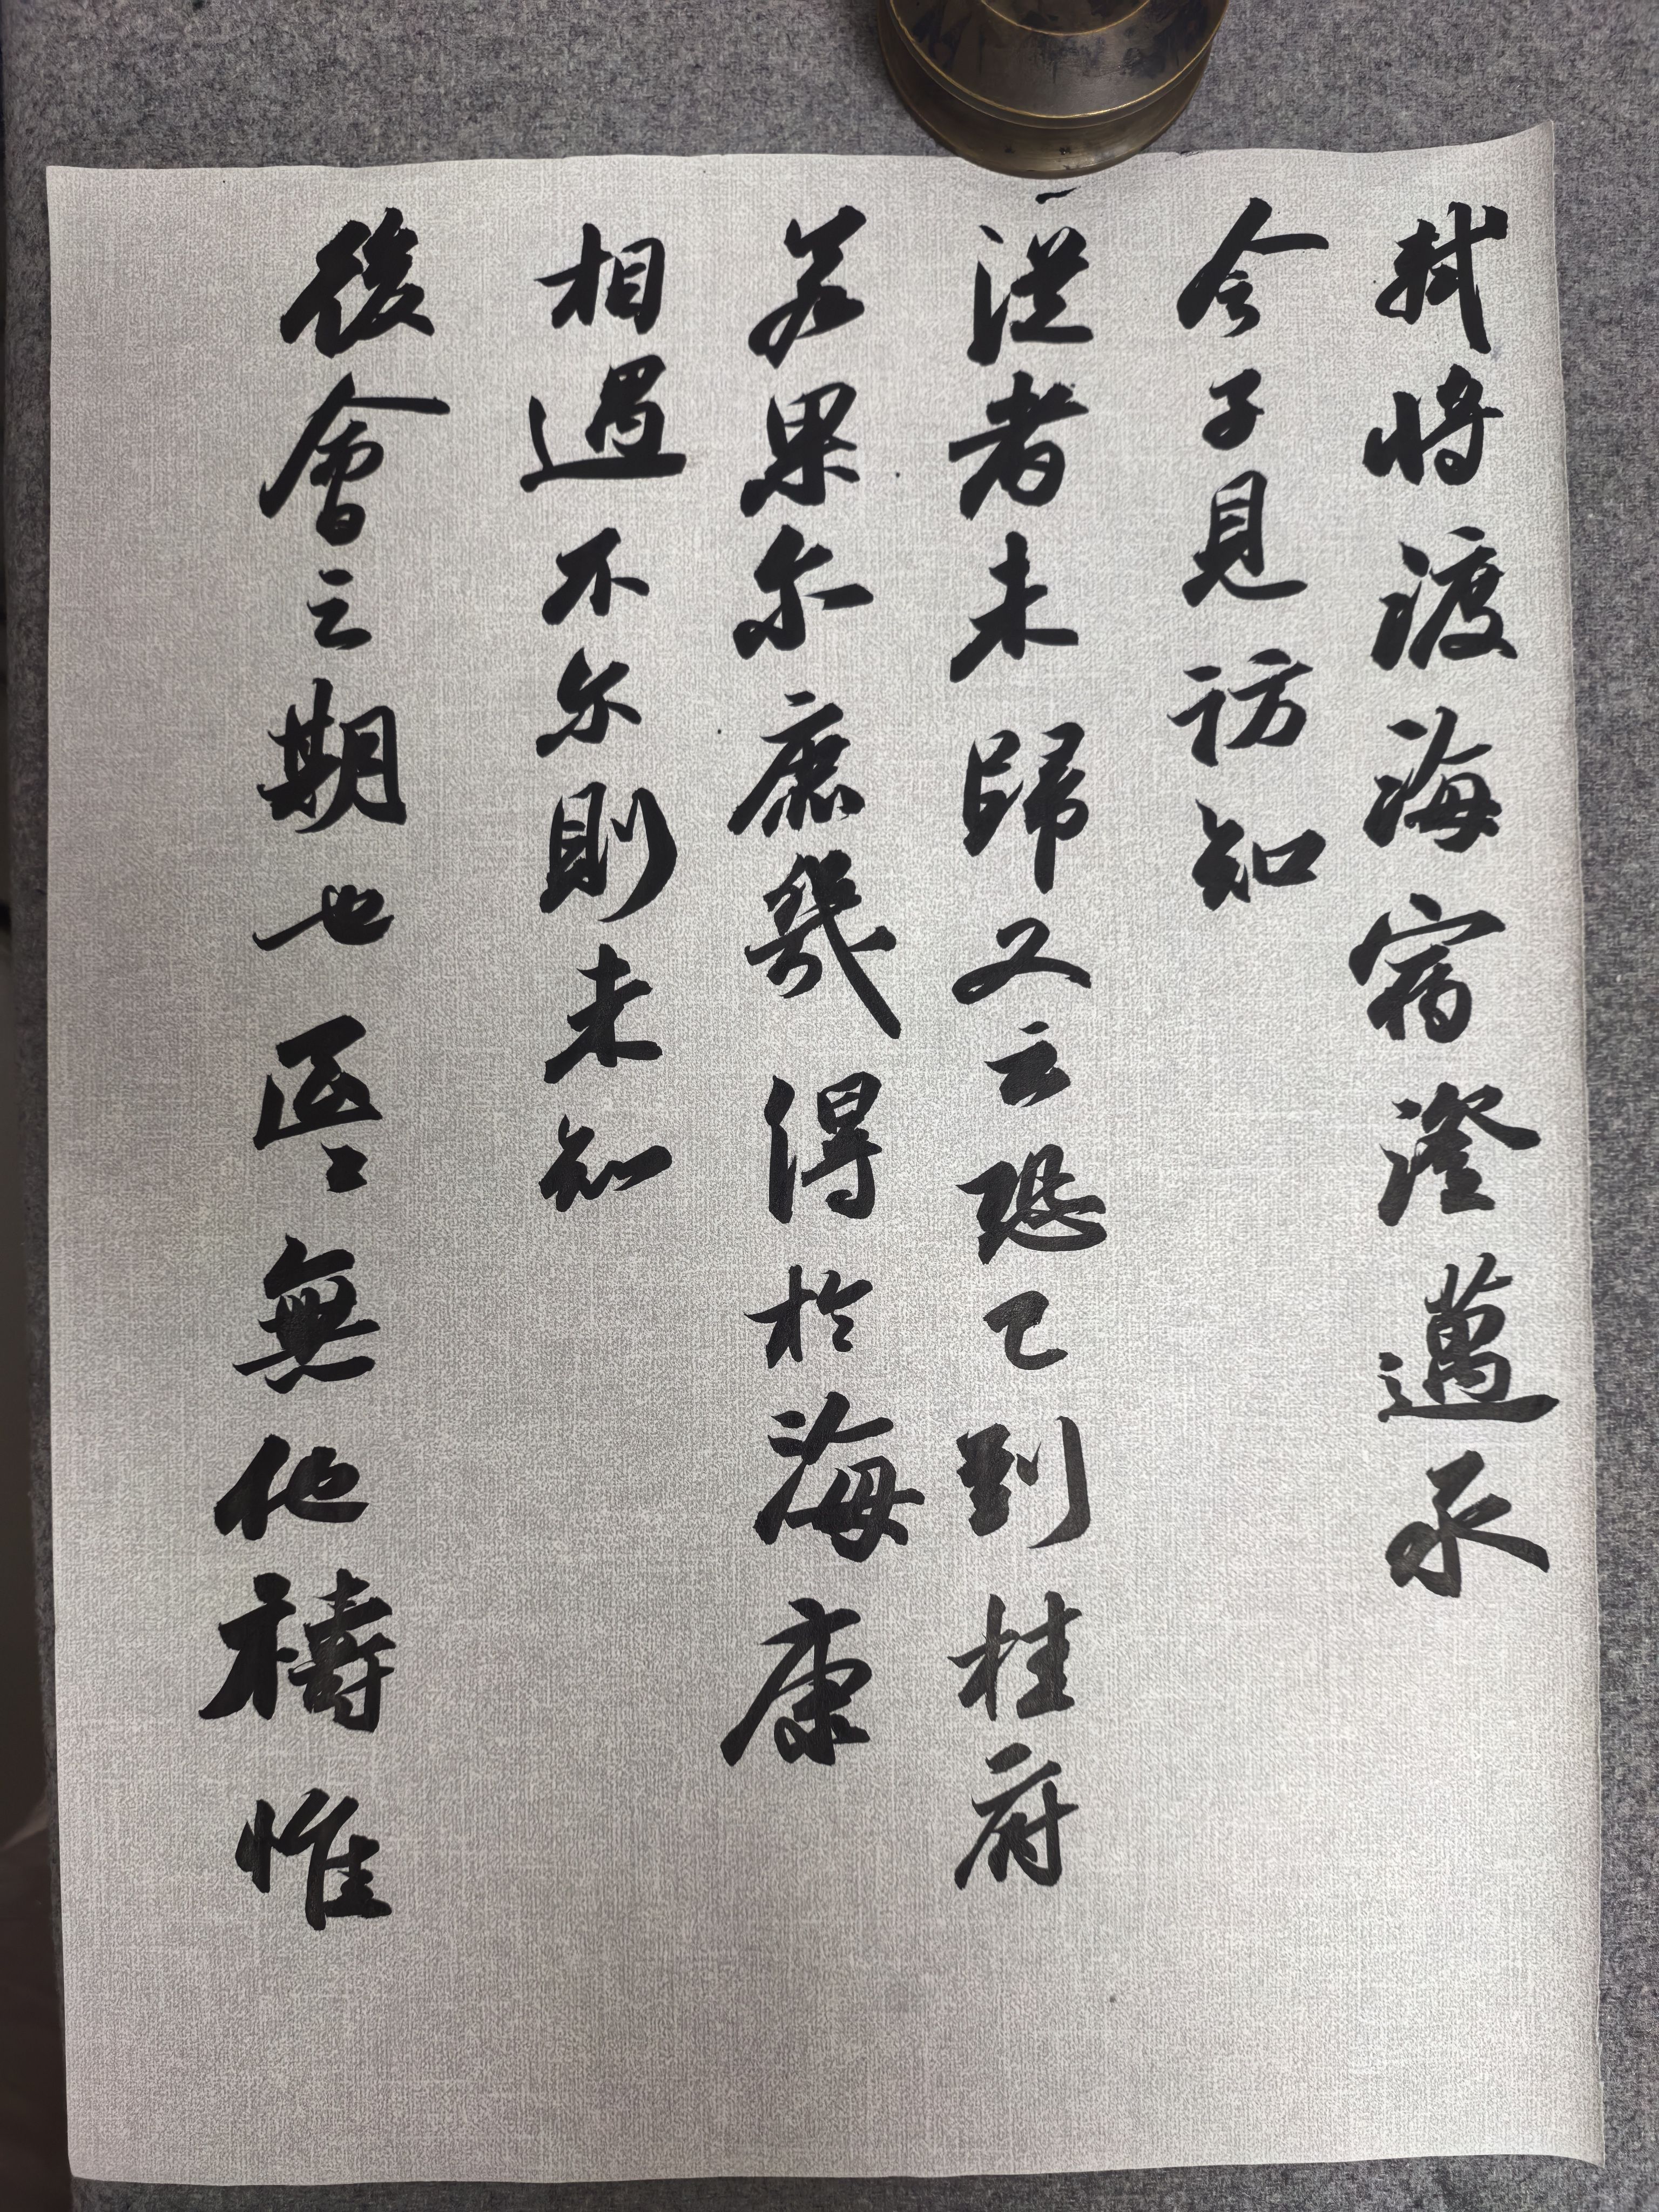 軾將渡海宿澄邁承
令子見訪知
從者未歸又云恐已到桂府
若果尔庶幾得於海康
相遇不尔則未知
後會之期也區〻無他禱惟